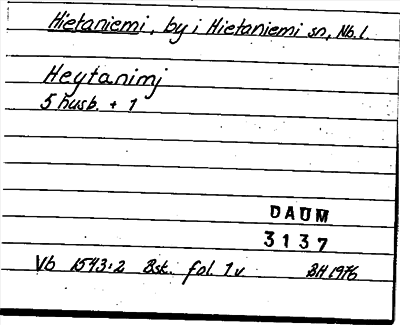 Hietaniemi, by i Hietaniemi sn, Nb.l.
Heytanimj
5 husb. + 1
DAUM
3137
Vb 1543:2 Bsk. fol. 1v BH 1976